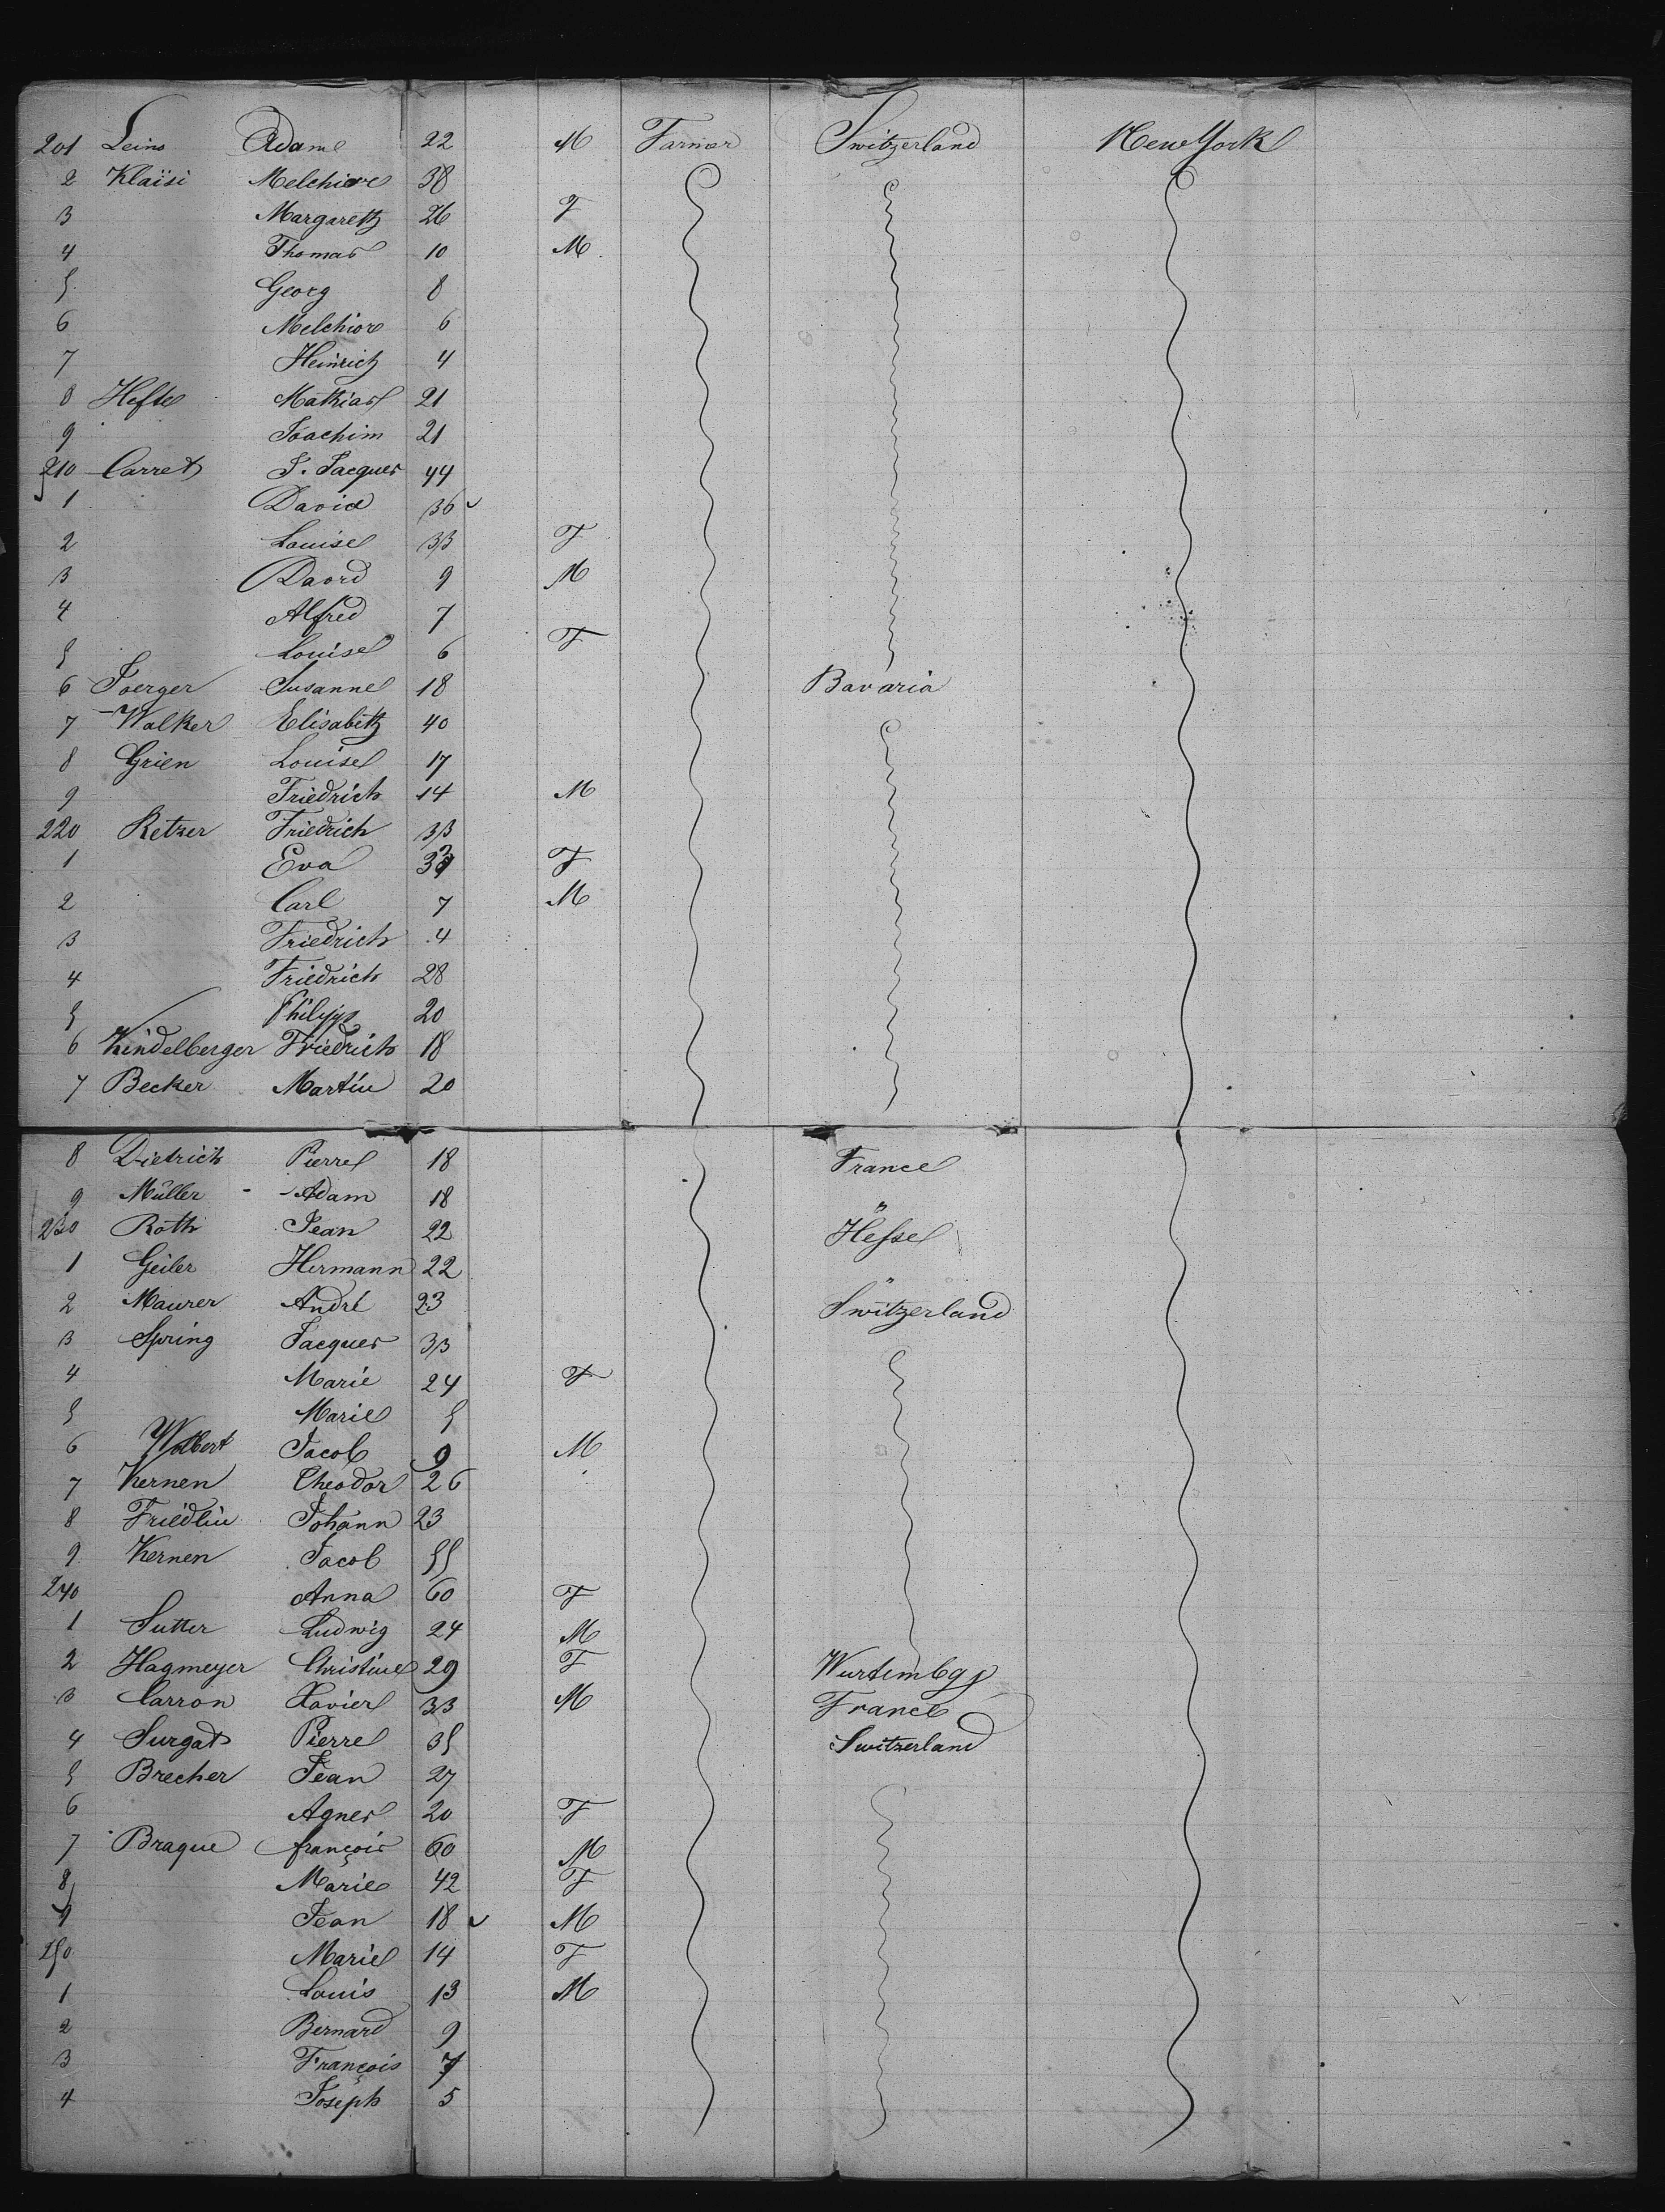 201 Leins Adam 22 M Farmer Switzerland New York
2 Klaïsi Melchiore 38
3 Margareth 26 F
4 Thomas 10 M
5 Georg 8
6 Melchior 6
7 Heinrich 4
8 Hefte Mathias 21
9 Joachim 21
210 Carret J. Jacques 44
1 David 36
2 Louise 33 F
3 David 9 M
4 Alfred 7
5 Louise 6 F
6 Joerger Susanne 18 Bavaria
7 Walker Elisabeth 40
8 Grien Louise 17
9 Friedrich 14 M
220 Retzer Friedrich 33
1 Eva F
2 Carl 7 M
3 Friedrich 4
4 Friedrich 28
5 Philipp 20
6 Kindelberger Friedrich 18
7 Becker Martin 20
8 Dietrich Pierre 18 France
9 Müller Adam 18 "
230 Roth Jean 22 Hesse
1 Geiler Hermann 22 "
2 Maurer André 23 Switzerland
3 Spring Jacques 33
4 Marie 24 F
5 Marie 5
6 Wolbert Jacob 9 M
7 Kernen Theodor 26
8 Friedlin Johann 23
9 Kernen Jacob 55
240 Anna 60 F
1 Sutter Ludwig 24 M
2 Hagmeyer Christine 29 F Wurtembg
3 Carron Xavier 33 M France
4 Surgat Pierre 35 Switzerland
5 Brecher Jean 27
6 Agnes 20 F
7 Braque françois 60 M
8 Marie 42 F
9 Jean 18 M
250 Marie 14 F
1 Louis 13 M
2 Bernard 9
3 François 7
4 Joseph 5